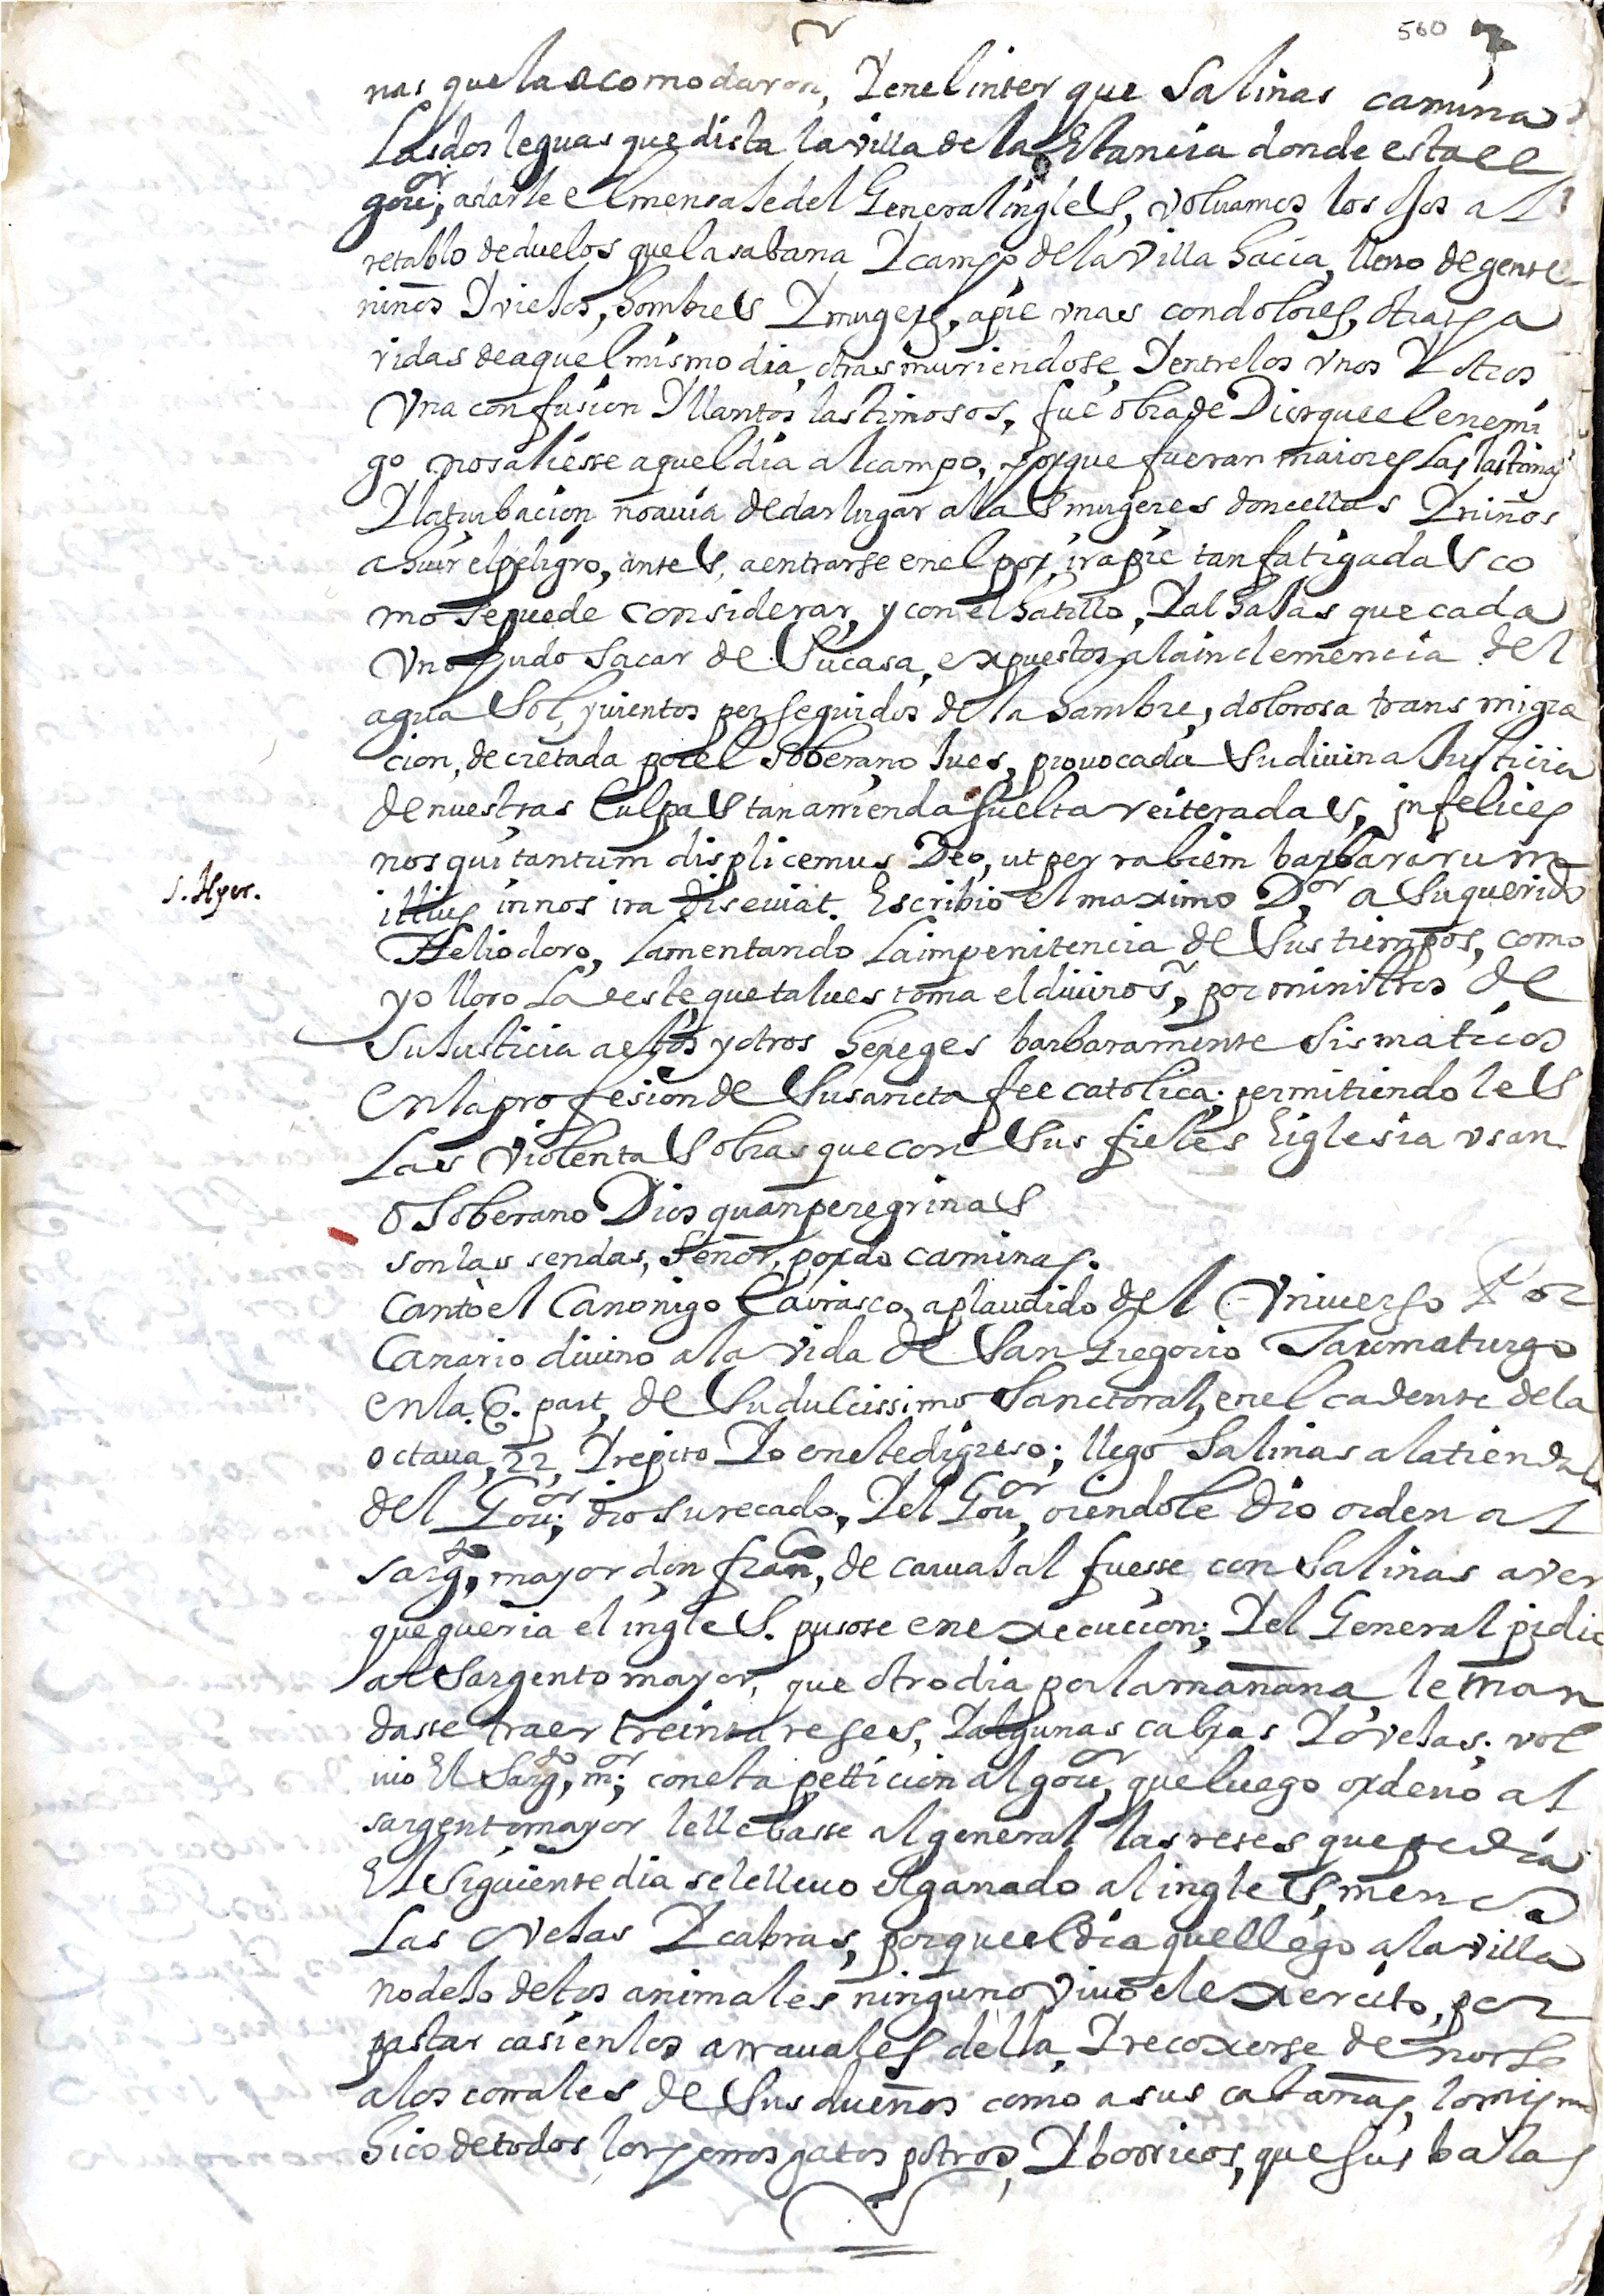 560
nas que la acomodaron, Y en el inter que Salinas camina
Las dos leguas que dista la villa de la Estancia donde esta el
gou.or, a darle el mensaje del General ingles, voluamos los ojos al
retablo de duelos que la sabana Y campo de la villa hacia, lleno de gente
niños Y viejos, hombres Y mugeres, a pie vnas con dolores, otras pa
ridas de aquel mismo dia, otras muriendose, Y entre los vnos Y otros
Vna confusion Y llantos lastimosos, fue obra de Dios que el enemi
go no saliesse aquel dia al campo, porque fueran maiores las lastimas
Y la turbacion no auia de dar lugar a las mugeres doncellas Y niños
a huir el peligro, antes, a entrarse en el por ir a pie tan fatigadas co
mo se puede considerar, y con el hatillo, Y alhajas que cada
Vno pudo sacar de su casa, expuestos a la inclemencia del
agua Sol, y vientos perseguidos de la hambre, dolorosa trans migra
cion, decretada por el soberano Jues, prouocada su diuina Justicia
de nuestras culpas tan a rrienda suelta reiteradas, infelices
nos qui tantum displicemus Deo, ut per rabiem barbararum
S. Hyer.
illius in nos ira diseuiat. Escribio el maximo D.or a su querido
Heliodoro, Lamentando La impenitencia de sus tiempos, como
yo lloro La de este, que tal ves toma el diuino s.r, por ministros de
su Justicia a estos y otros hereges barbaramente sismaticos
en la profesion de su sancta fee catolica; permitiendo les
Las violentas obras que con sus fieles E iglesia vsan
O Soberano Dios quan peregrinas
son las sendas, Señor, por do caminas.
Cantò el Canonigo Cairasco, aplaudido del Vniuerso Por
Canario diuino a la vida de San Gregorio Taumaturgo
en la. 6. part, de su dulcissimo Sanctoral, en el cadente de la
octaua, 22, Y repito Yo en este digreso; llego Salinas a la tienda
del Gou.or; dio su recado, Y el Gou.or, oiendole dio orden al
sarg.to, mayor don fran.co, de caruajal fuesse con Salinas a ver
que queria el ingles. pusose en execucion; Y el General pidio
al Sargento mayor, que otro dia por la mañana le man
dasse traer treinta reses, Y algunas cabras Y ovejas; vol
uio El Sarg.to, m.or; con esta petticion al gou.or, que luego ordeno al
sargento mayor le llebasse al general las reses que pedia
El siguiente dia se le lleuo el ganado al ingles, menos
Las ovejas Y cabras, porque el dia que llego a la villa
no dejo destos animales ninguno viuo el exercito, por
pastar casi en los arrauales della, Y recoxerse de noche
a los corrales de sus dueños como a sus cabañas, lo mismo
hico de todos los perros gatos potros, Y borricos, que sus balas